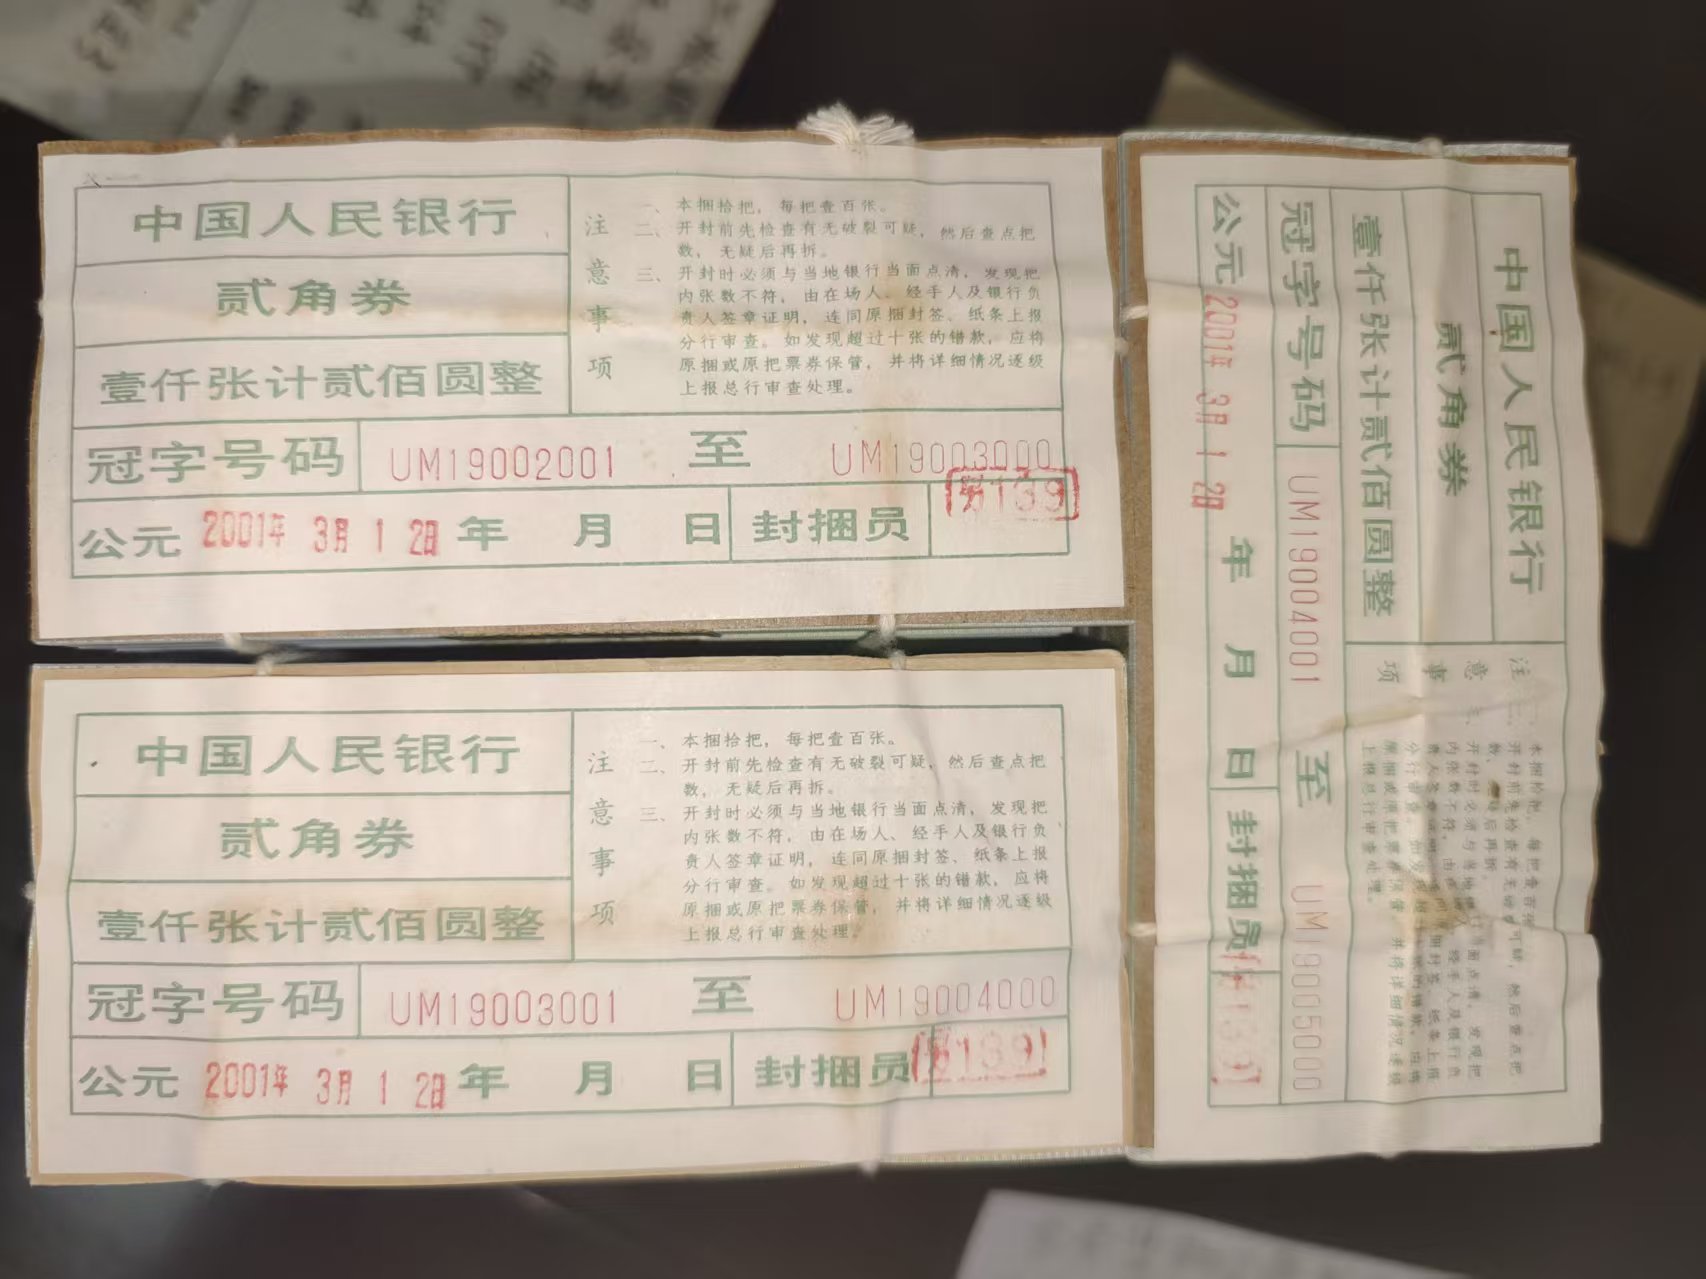 中国人民银行
贰角券
壹仟张计贰佰圆整
注意事项
一、本捆拾把，每把壹百张。
二、开封前先检查有无破裂可疑，然后查点把
数，无疑后再拆。
三、开封时必须与当地银行当面点清，发现把
内张数不符，由在场人、经手人及银行负
责人签章证明，连同原捆封签、纸条上报
分行审查。如发现超过十张的错款，应将
原捆或原把票券保管，并将详细情况逐级
上报总行审查处理。
冠字号码 UM19002001 至 UM19003000
公元 2001年 3月 12日 年 月 日 封捆员 139
中国人民银行
贰角券
壹仟张计贰佰圆整
注意事项
一、本捆拾把，每把壹百张。
二、开封前先检查有无破裂可疑，然后查点把
数，无疑后再拆。
三、开封时必须与当地银行当面点清，发现把
内张数不符，由在场人、经手人及银行负
责人签章证明，连同原捆封签、纸条上报
分行审查。如发现超过十张的错款，应将
原捆或原把票券保管，并将详细情况逐级
上报总行审查处理。
冠字号码 UM19003001 至 UM19004000
公元 2001年 3月 12日 年 月 日 封捆员 139
中国人民银行
贰角券
壹仟张计贰佰圆整
注意事项
本捆拾把，每把壹百
开封前先检查有无破 可疑，然后查点把
数， 后再拆。
开封时必须与当地 当面点清，发现把
内张数不符，由 经手人及银行负
责人签章证明， 同 捆封签、纸条上报
分行审查。如发现超 的错款，应将
原捆或原把票券保管，并将详细情况逐级
上报总行审查处理。
冠字号码 UM19004001 至 UM19005000
公元 2001年 3月 12日 年 月 日 封捆员 139